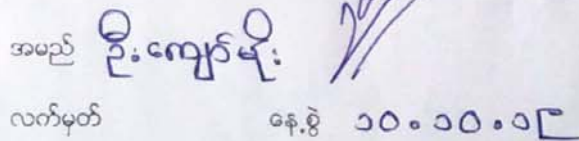 အမည် ဦးကျော်မိုး
လက်မှတ် နေ့စွဲ ၁၀.၁၀.၁၉